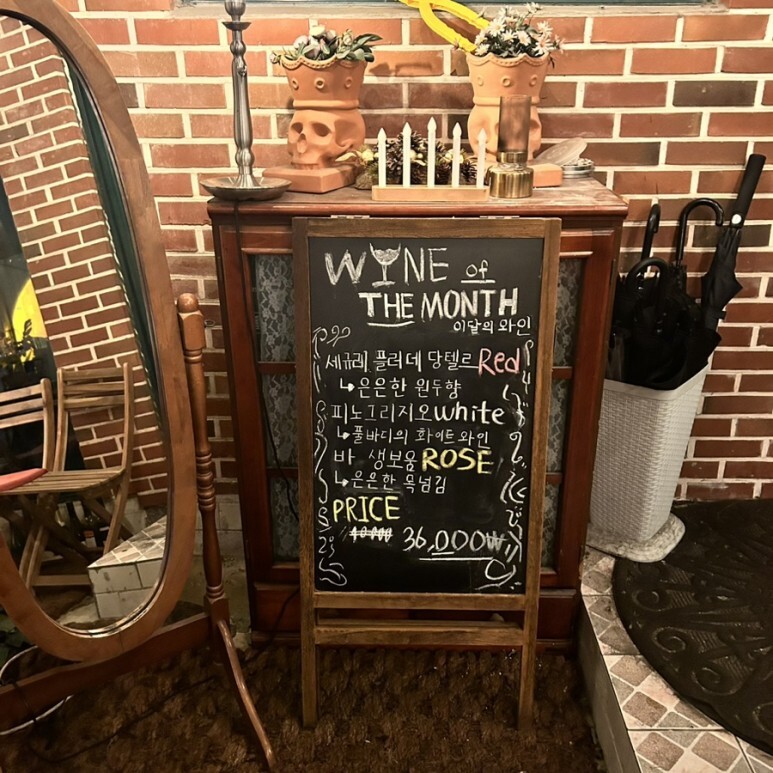 WINE of
THE MONTH
이달의 와인
세규레 플러데 당텔르 Red
↳은은한 원두향
피노그리지오 white
↳풀바디의 화이트와인
바 생보움 ROSE
↳은은한 목넘김
PRICE
40.000 36,000₩